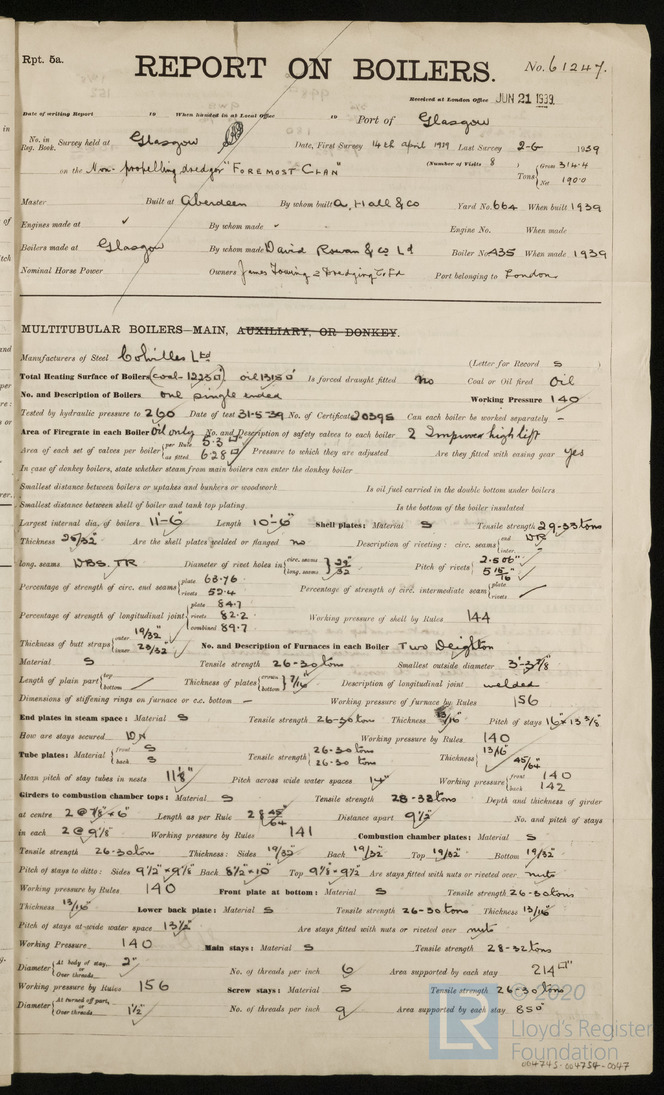 Rpt. 5a.
REPORT ON BOILERS.
No. 61247.
Received at London Office JUN 21 1939
Date of writing Report 19 When handed in at Local Office 19 Port of Glasgow
No. in Reg. Book. Survey held at Glasgow Date, First Survey 14th April 1939 Last Survey 2-6- 1939
on the Non-propelling dredger "FOREMOST CLAN" (Number of Visits 8 ) Tons Gross 314.4 Net 190.0
Master Built at Aberdeen By whom built A. Hall & Co Yard No. 664 When built 1939
Engines made at ✓ By whom made Engine No. When made
Boilers made at Glasgow By whom made David Rowan & Co Ld Boiler No. 435 When made 1939
Nominal Horse Power Owners James Towing & Dredging Co Ld Port belonging to London
MULTITUBULAR BOILERS—MAIN, AUXILIARY, OR DONKEY.
Manufacturers of Steel Colvilles Ltd (Letter for Record S )
Total Heating Surface of Boilers (coal - 1225□) oil 1315□ Is forced draught fitted No Coal or Oil fired Oil
No. and Description of Boilers One single ended Working Pressure 140
Tested by hydraulic pressure to 260 Date of test 31-5-39 No. of Certificate 20395 Can each boiler be worked separately –
Area of Firegrate in each Boiler Oil only No. and Description of safety valves to each boiler 2 Improved high lift
Area of each set of valves per boiler per Rule 5.3 □" as fitted 6.28 □" Pressure to which they are adjusted Are they fitted with easing gear yes
In case of donkey boilers, state whether steam from main boilers can enter the donkey boiler
Smallest distance between boilers or uptakes and bunkers or woodwork Is oil fuel carried in the double bottom under boilers
Smallest distance between shell of boiler and tank top plating Is the bottom of the boiler insulated
Largest internal dia. of boilers 11'-6" Length 10'-6" Shell plates: Material S Tensile strength 29-33 tons
Thickness 25/32" Are the shell plates welded or flanged no Description of riveting: circ. seams end DR inter.
long. seams DBS. TR Diameter of rivet holes in circ. seams long. seams 29/32" Pitch of rivets 2.506" 5 15/16"
Percentage of strength of circ. end seams plate 63.76 rivets 52.4 Percentage of strength of circ. intermediate seam plate rivets
Percentage of strength of longitudinal joint plate 84.7 rivets 82.2 combined 89.7 Working pressure of shell by Rules 144
Thickness of butt straps outer 19/32" inner 23/32" No. and Description of Furnaces in each Boiler Two Deighton
Material S Tensile strength 26-30 tons Smallest outside diameter 3'-3 7/8"
Length of plain part top bottom Thickness of plates crown bottom 7/16" Description of longitudinal joint welded
Dimensions of stiffening rings on furnace or c.c. bottom – Working pressure of furnace by Rules 156
End plates in steam space: Material S Tensile strength 26-30 tons Thickness 13/16" Pitch of stays 16" x 13 3/8"
How are stays secured DN Working pressure by Rules 140
Tube plates: Material front S back S Tensile strength 26-30 tons 26-30 tons Thickness 13/16" 45/64"
Mean pitch of stay tubes in nests 11 1/8" Pitch across wide water spaces 14" Working pressure front 140 back 142
Girders to combustion chamber tops: Material S Tensile strength 28-32 tons Depth and thickness of girder
at centre 2 @ 7/8" x 6" Length as per Rule 28 45/64" Distance apart 9 1/2" No. and pitch of stays
in each 2 @ 9 1/8" Working pressure by Rules 141 Combustion chamber plates: Material S
Tensile strength 26-30 tons Thickness: Sides 19/32" Back 19/32" Top 19/32" Bottom 19/32"
Pitch of stays to ditto: Sides 9 1/2" x 9 1/8" Back 8 1/2" x 10" Top 9 1/8" x 9 1/2" Are stays fitted with nuts or riveted over nuts
Working pressure by Rules 140 Front plate at bottom: Material S Tensile strength 26-30 tons
Thickness 13/16" Lower back plate: Material S Tensile strength 26-30 tons Thickness 13/16"
Pitch of stays at wide water space 13 1/2" Are stays fitted with nuts or riveted over nuts
Working Pressure 140 Main stays: Material S Tensile strength 28-32 tons
Diameter At body of stay, or Over threads 2" No. of threads per inch 6 Area supported by each stay 214 □"
Working pressure by Rules 156 Screw stays: Material S Tensile strength 26-30 tons
Diameter At turned off part, or Over threads 1 1/2" No. of threads per inch 9 Area supported by each stay 85□
© 2020
LR Lloyd's Register
Foundation
004745-004754-0047